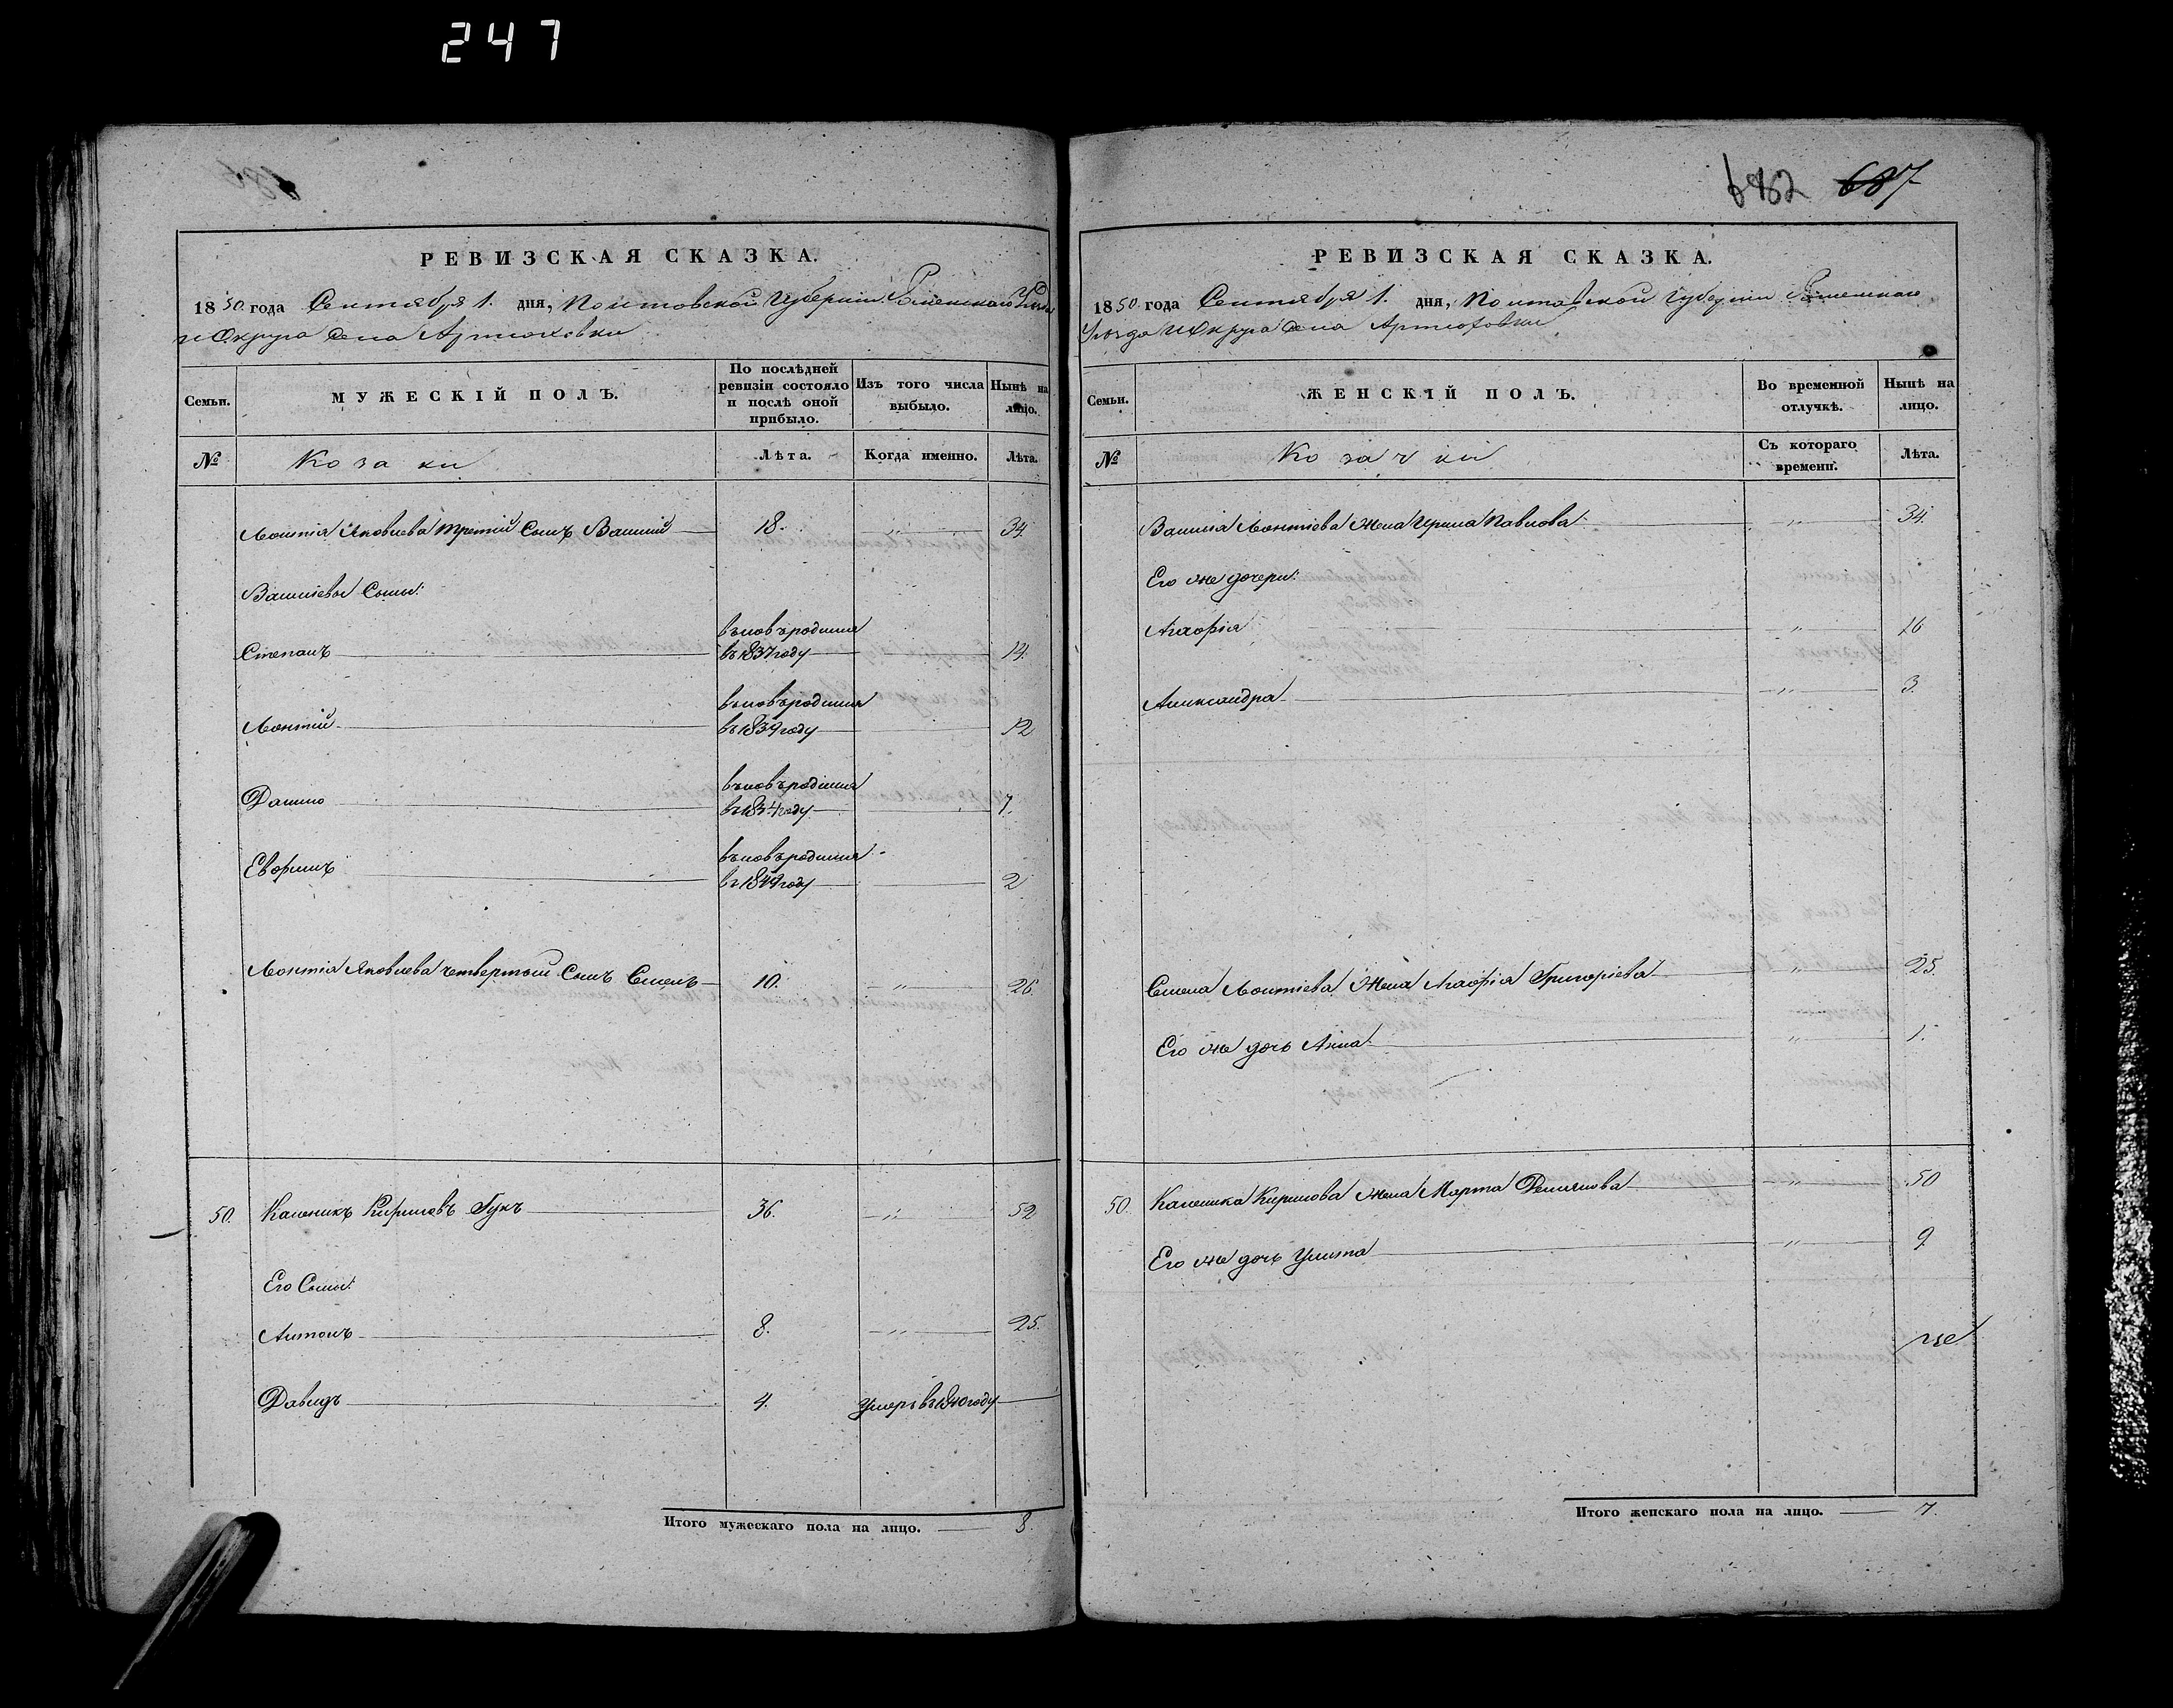 247
682 687
РЕВИЗСКАЯ СКАЗКА.
1850 года Сентября 1. дня, Полтавской Губерніи Роменскаго Уезда
и Округа Села Артюховки
Семьи.
МУЖЕСКІЙ ПОЛЪ.
По послѣдней ревизіи состояло и послѣ оной прибыло.
Изъ того числа выбыло.
Нынѣ на лицо.
№
Козаки
Лѣта.
Когда именно.
Лѣта.
Леонтія Яковлева третій Сынъ Василій 18. „ 34.
Василіевы Сыны:
вновь родился
Степанъ въ 1837 году 14.
вновь родился
Леонтій въ 1839 году 12
вновь родился
Данило году 7.
вновь родился
Евфимъ въ 1849 году 2
Леонтія Яковлева четвертый Сынъ Семенъ 10. „ 26.
50. Каленикъ Кириловъ Гукъ 36. „ 52
Его Сыны:
Антонъ 8. „ 25.
Давидъ 4. Умеръ въ 1840 году
Итого мужескаго пола на лицо. 8.
РЕВИЗСКАЯ СКАЗКА.
1850 года Сентября 1. дня, Полтавской Губерніи Роменскаго
Уезда и Округа Села Артюховки
Семьи.
ЖЕНСКІЙ ПОЛЪ.
Во временной отлучкѣ.
Нынѣ на лицо.
№
Козачки
Съ котораго времени.
Лѣта.
Василія Леонтіева жена Ирина Павлова „ 34.
Его же дочери:
Агафія „ 16
Александра „ 3.
Семена Леонтіева жена Агафія Григоріева „ 25.
Его же дочь Анна „ 1.
50. Каленика Кирилова жена Марта Демянова „ 50
Его же дочь Улита „ 9
Итого женскаго пола на лицо. 7.